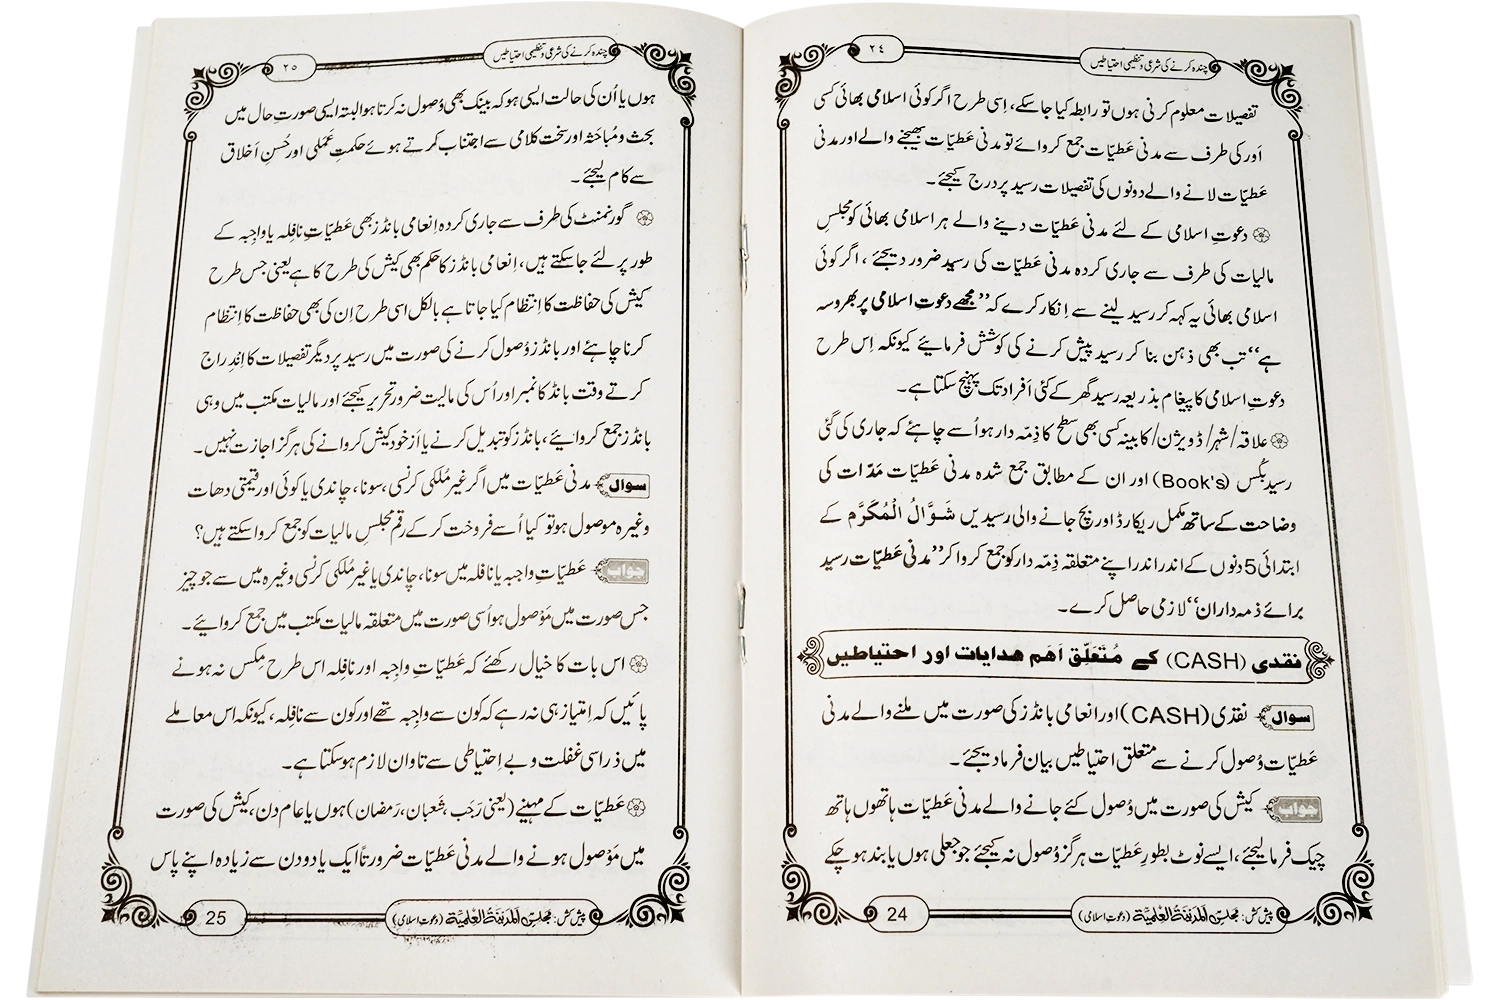 چندہ کرنے کی شرعی و تنظیمی احتیاطیں
٢٤
تفصیلات معلوم کرنی ہوں تو رابطہ کیا جا سکے، اِسی طرح اگر کوئی اسلامی بھائی کسی
اَور کی طرف سے مدنی عطیّات جمع کروائے تو مدنی عَطیّات بھیجنے والے اور مدنی
عَطیّات لانے والے دونوں کی تفصیلات رسید پر درج کیجئے۔
دعوتِ اسلامی کے لئے مدنی عَطیّات دینے والے ہر اسلامی بھائی کو مجلسِ
مالیات کی طرف سے جاری کردہ مدنی عَطیّات کی رسید ضرور دیجئے، اگر کوئی
اسلامی بھائی یہ کہہ کر رسید لینے سے اِنکار کرے کہ ”مجھے دعوتِ اسلامی پر بھروسہ
ہے“ تب بھی ذہن بنا کر رسید پیش کرنے کی کوشش فرمائیے کیونکہ اِس طرح
دعوتِ اسلامی کا پیغام بذریعہ رسید گھر کے کئی اَفراد تک پہنچ سکتا ہے۔
علاقہ/شہر/ڈویژن/کابینہ کسی بھی سطح کا ذِمّہ دار ہو اُسے چاہئے کہ جاری کی گئی
رسید بُکس (Book's) اور ان کے مطابق جمع شدہ مدنی عَطیّات مَدّات کی
وضاحت کے ساتھ مکمل ریکارڈ اور بچ جانے والی رسیدیں شَوَّالُ الْمُکَرَّم کے
ابتدائی 5 دنوں کے اندر اندر اپنے متعلقہ ذِمّہ دار کو جمع کروا کر ”مدنی عَطیّات رسید
برائے ذمہ داران“ لازمی حاصل کرے۔
نقدی (CASH) کے مُتَعَلِّق اَہم ہدایات اور احتیاطیں
سوال نقدی (CASH) اور انعامی بانڈز کی صورت میں ملنے والے مدنی
عَطیّات وُصول کرنے سے متعلق احتیاطیں بیان فرما دیجئے۔
جواب کیش کی صورت میں وُصول کئے جانے والے مدنی عَطیّات ہاتھوں ہاتھ
چیک فرما لیجئے، ایسے نوٹ بطورِ عَطیّات ہرگز وُصول نہ کیجئے جو جعلی ہوں یا بند ہو چکے
پیش کش: مجلس المدینۃ العلمیۃ (دعوتِ اسلامی)
24
چندہ کرنے کی شرعی و تنظیمی احتیاطیں
٢٥
ہوں یا اُن کی حالت ایسی ہو کہ بینک بھی وُصول نہ کرتا ہو البتہ ایسی صورتِ حال میں
بحث و مُباحَثہ اور سخت کلامی سے اجتناب کرتے ہوئے حکمتِ عَمَلی اور حُسنِ اَخلاق
سے کام لیجئے۔
گورنمنٹ کی طرف سے جاری کردہ اِنعامی بانڈز بھی عَطیّاتِ نافِلہ یا واجِبہ کے
طور پر لئے جا سکتے ہیں، اِنعامی بانڈز کا حکم بھی کیش کی طرح کا ہے یعنی جس طرح
کیش کی حفاظت کا اِنتظام کیا جاتا ہے بالکل اسی طرح اِن کی بھی حفاظت کا اِنتظام
کرنا چاہئے اور بانڈز وُصول کرنے کی صورت میں رسید پر دیگر تفصیلات کا اِندِراج
کرتے وقت بانڈ کا نمبر اور اُس کی مالیت ضرور تحریر کیجئے اور مالیات مکتب میں وہی
بانڈز جمع کروائیے، بانڈز کو تبدیل کرنے یا اَز خود کیش کروانے کی ہرگز اجازت نہیں۔
سوال مدنی عَطیّات میں اگر غیر مُلکی کرنسی، سونا، چاندی یا کوئی اور قیمتی دھات
وغیرہ موصول ہو تو کیا اُسے فروخت کر کے رقم مجلسِ مالیات کو جمع کروا سکتے ہیں؟
جواب عَطیّاتِ واجبہ یا نافلہ میں سونا، چاندی یا غیر مُلکی کرنسی وغیرہ میں سے جو چیز
جس صورت میں مَوْصول ہو اُسی صورت میں متعلقہ مالیات مکتب میں جمع کروائیے۔
اس بات کا خیال رکھئے کہ عَطیّاتِ واجبہ اور نافِلہ اس طرح مِکس نہ ہونے
پائیں کہ اِمتیاز ہی نہ رہے کہ کون سے واجِبہ تھے اور کون سے نافِلہ، کیونکہ اس معاملے
میں ذرا سی غفلت و بے اِحتیاطی سے تاوان لازم ہو سکتا ہے۔
عَطیّات کے مہینے (یعنی رَجَب، شَعبان، رَمضان) ہوں یا عام دن، کیش کی صورت
میں مَوْصول ہونے والے مدنی عَطیّات ضرورتاً ایک یا دو دن سے زیادہ اپنے پاس
پیش کش: مجلس المدینۃ العلمیۃ (دعوتِ اسلامی)
25